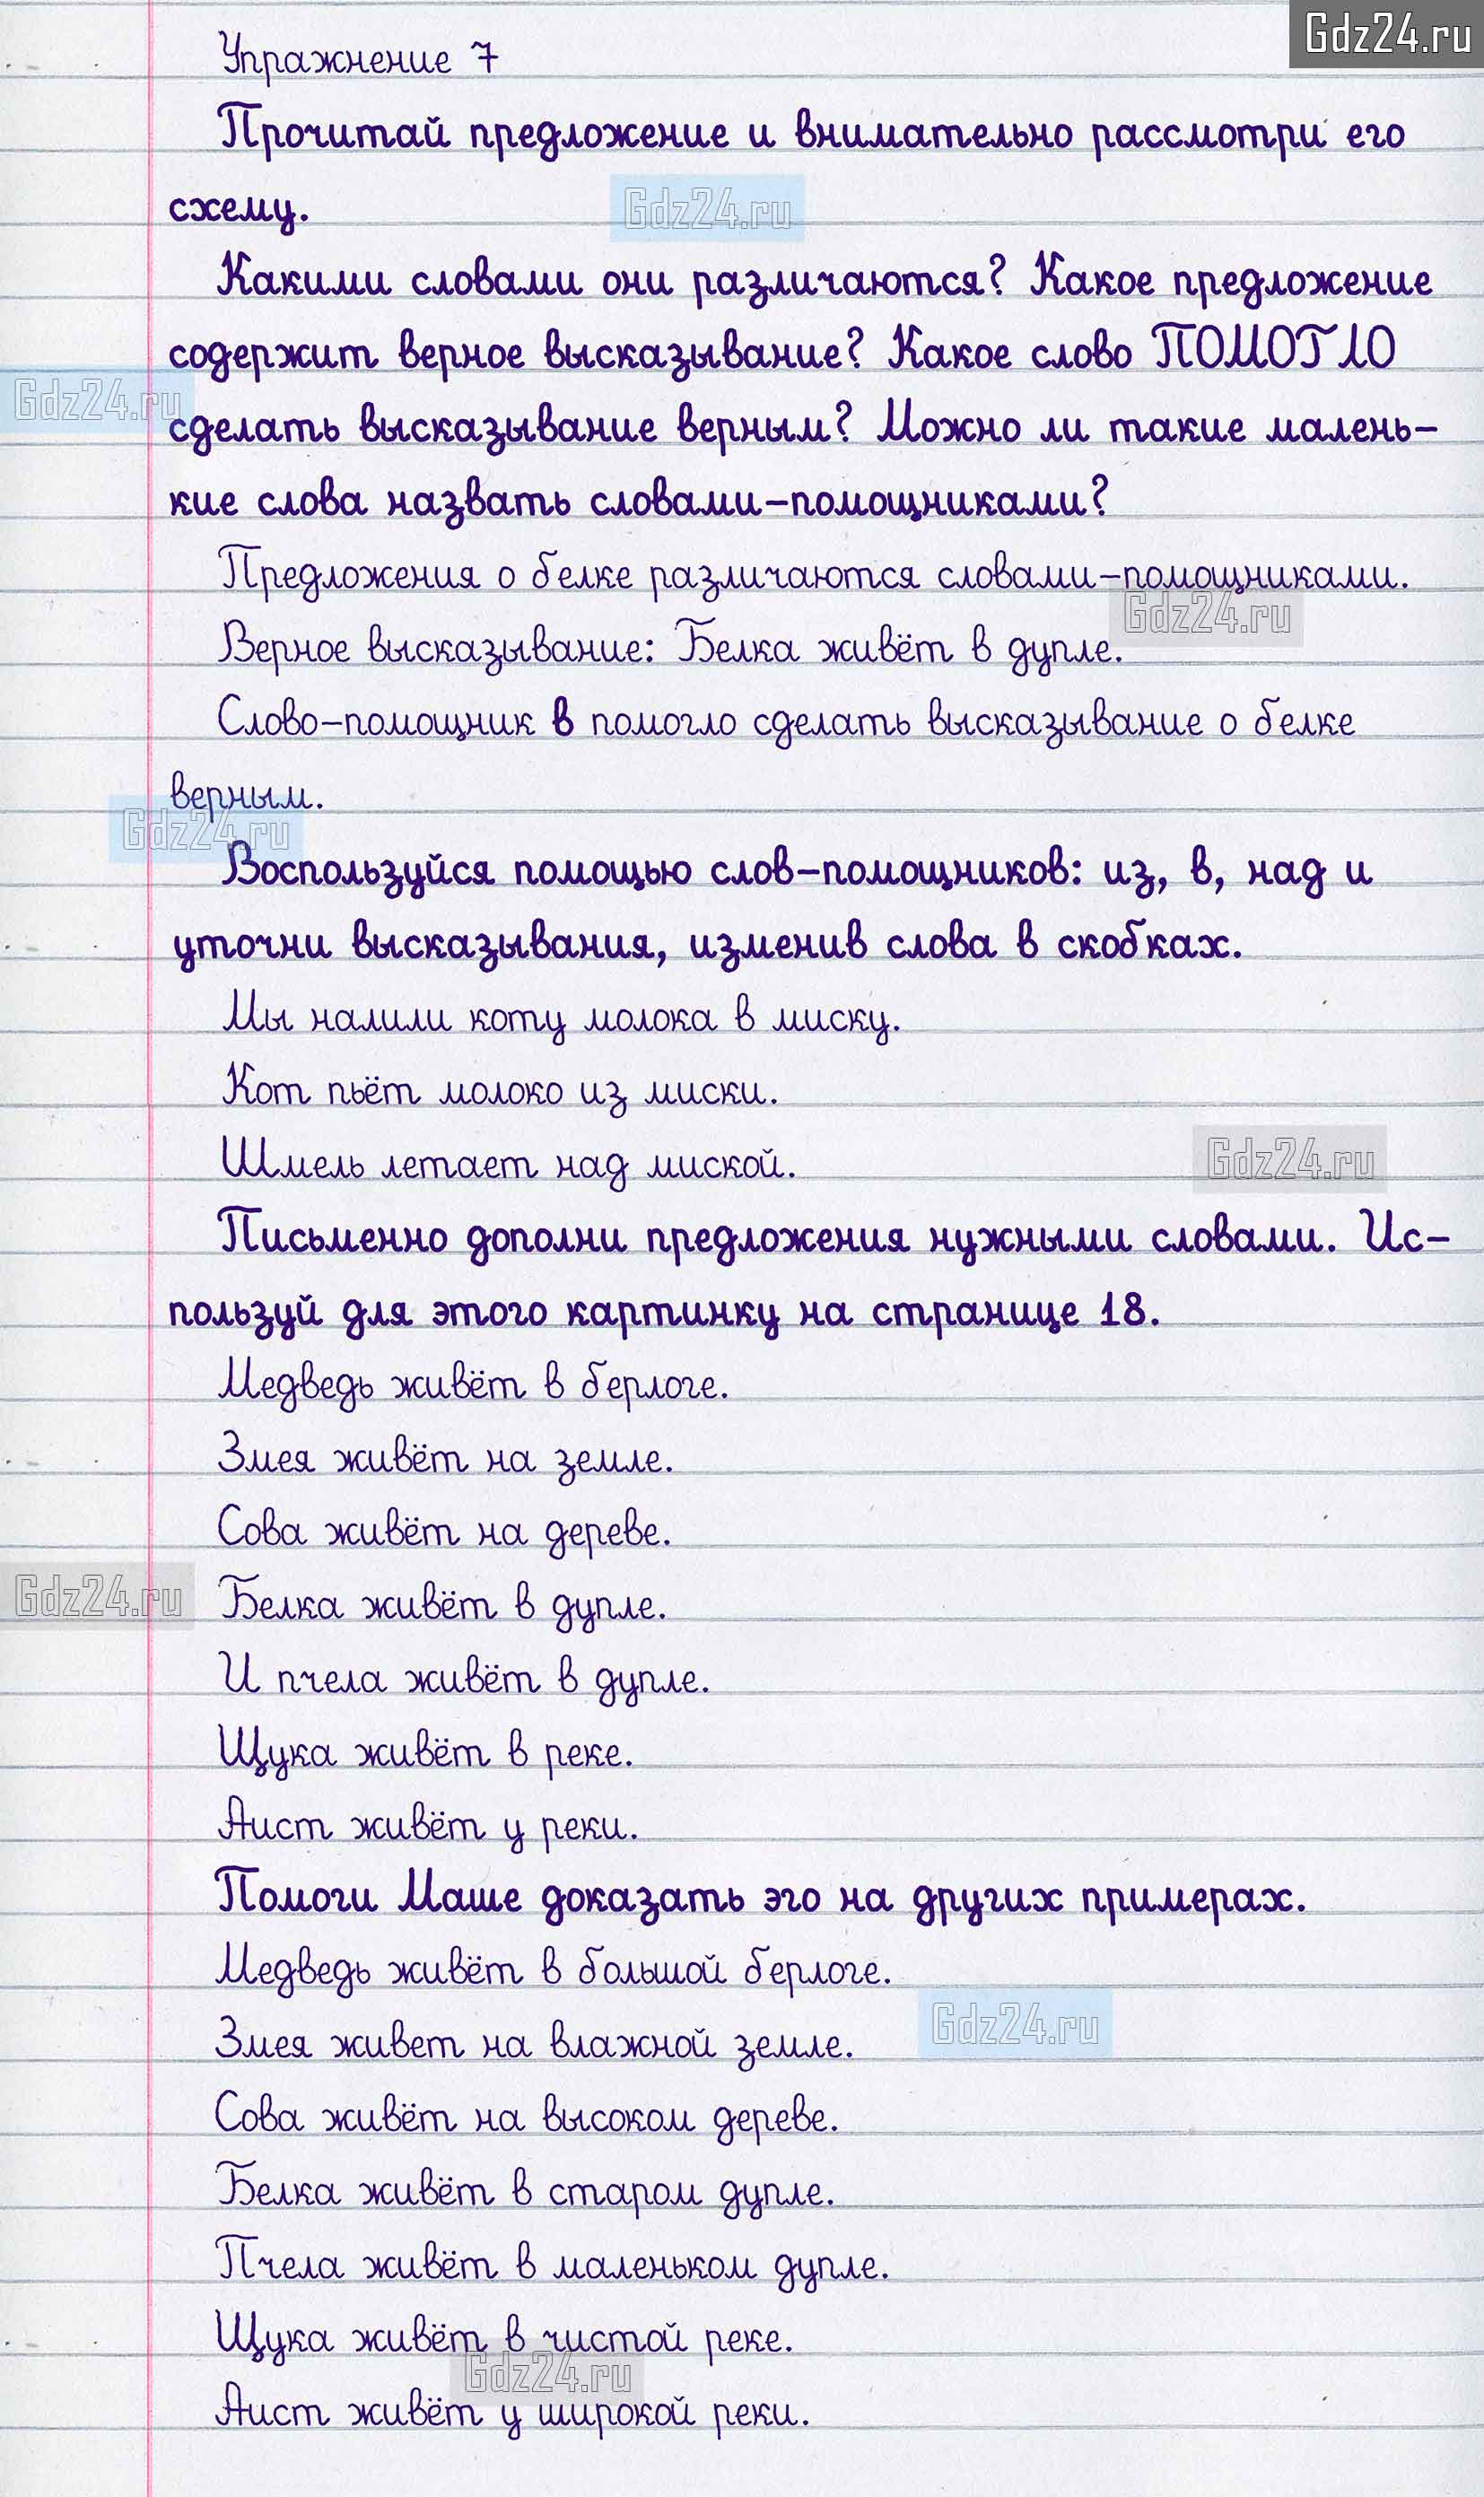 Gdz24.ru
Упражнение 7
Прочитай предложение и внимательно рассмотри его
схему.
Gdz24.ru
Какими словами они различаются? Какое предложение
содержит верное высказывание? Какое слово ПОМОГЛО
Gdz24.ru
сделать высказывание верным? Можно ли такие малень-
кие слова назвать словами-помощниками?
Предложения о белке различаются словами-помощниками.
Gdz24.ru
Верное высказывание: Белка живёт в дупле.
Слово-помощник в помогло сделать высказывание о белке
верным.
Gdz24.ru
Воспользуйся помощью слов-помощников: из, в, над и
уточни высказывания, изменив слова в скобках.
Мы налили коту молока в миску.
Кот пьёт молоко из миски.
Шмель летает над миской.
Gdz24.ru
Письменно дополни предложения нужными словами. Ис-
пользуй для этого картинку на странице 18.
Медведь живёт в берлоге.
Змея живёт на земле.
Сова живёт на дереве.
Gdz24.ru
Белка живёт в дупле.
И пчела живёт в дупле.
Щука живёт в реке.
Аист живёт у реки.
Помоги Маше доказать эго на других примерах.
Медведь живёт в большой берлоге.
Gdz24.ru
Змея живет на влажной земле.
Сова живёт на высоком дереве.
Белка живёт в старом дупле.
Пчела живёт в маленьком дупле.
Щука живёт в чистой реке.
Gdz24.ru
Аист живёт у широкой реки.